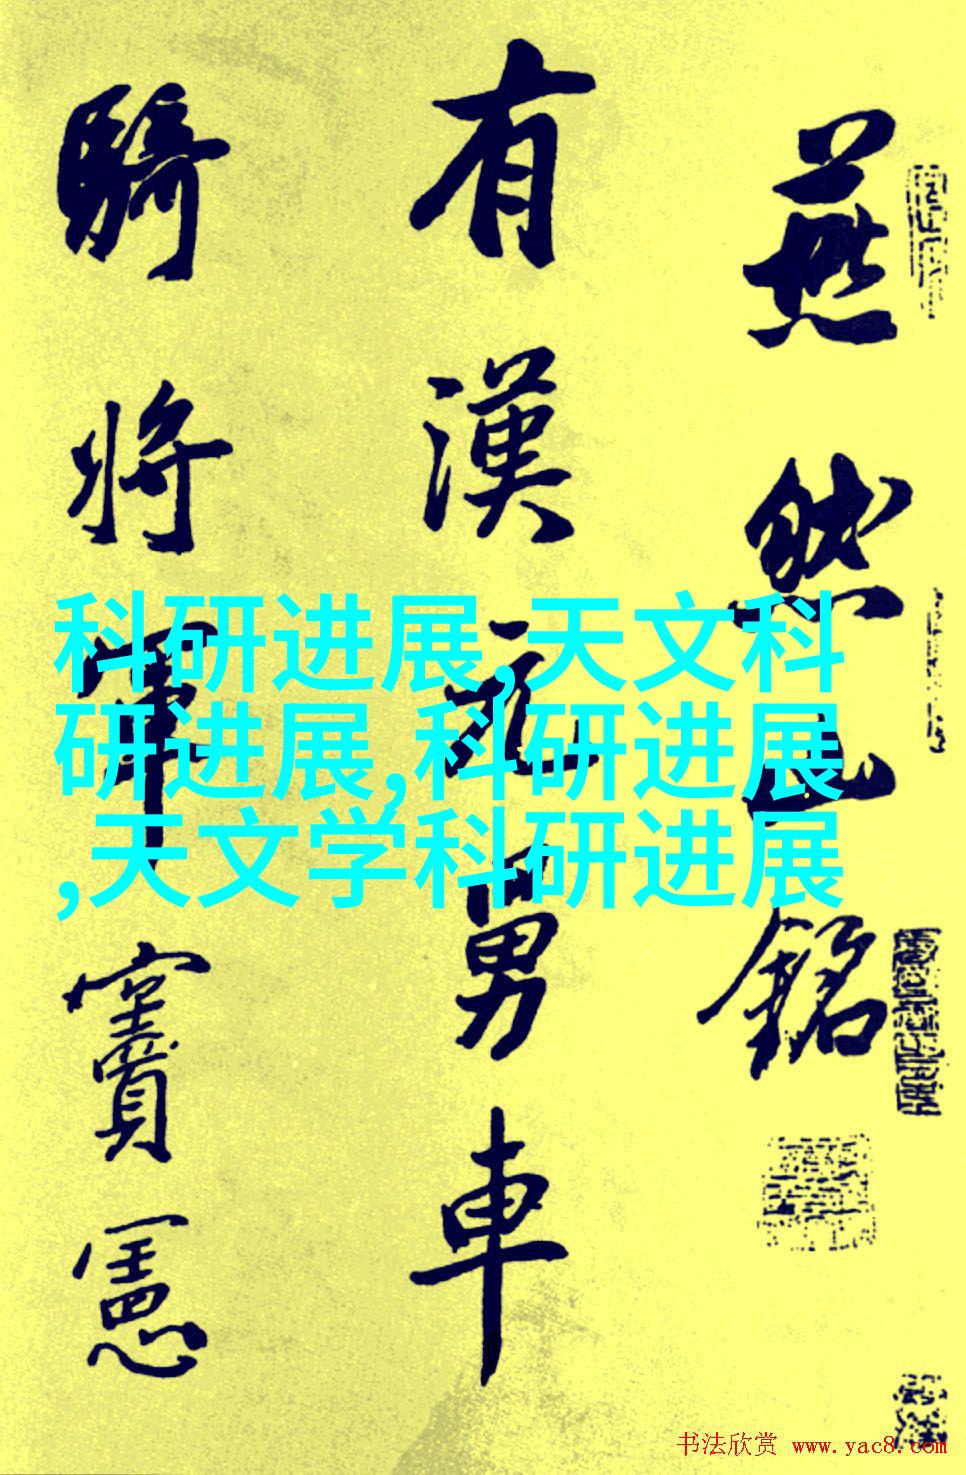 燕然山銘
有漢元舅車
騎將軍竇憲
科研进展,天文科
研进展,科研进展
,天文学科研进展
书法欣赏 www.yac8.com